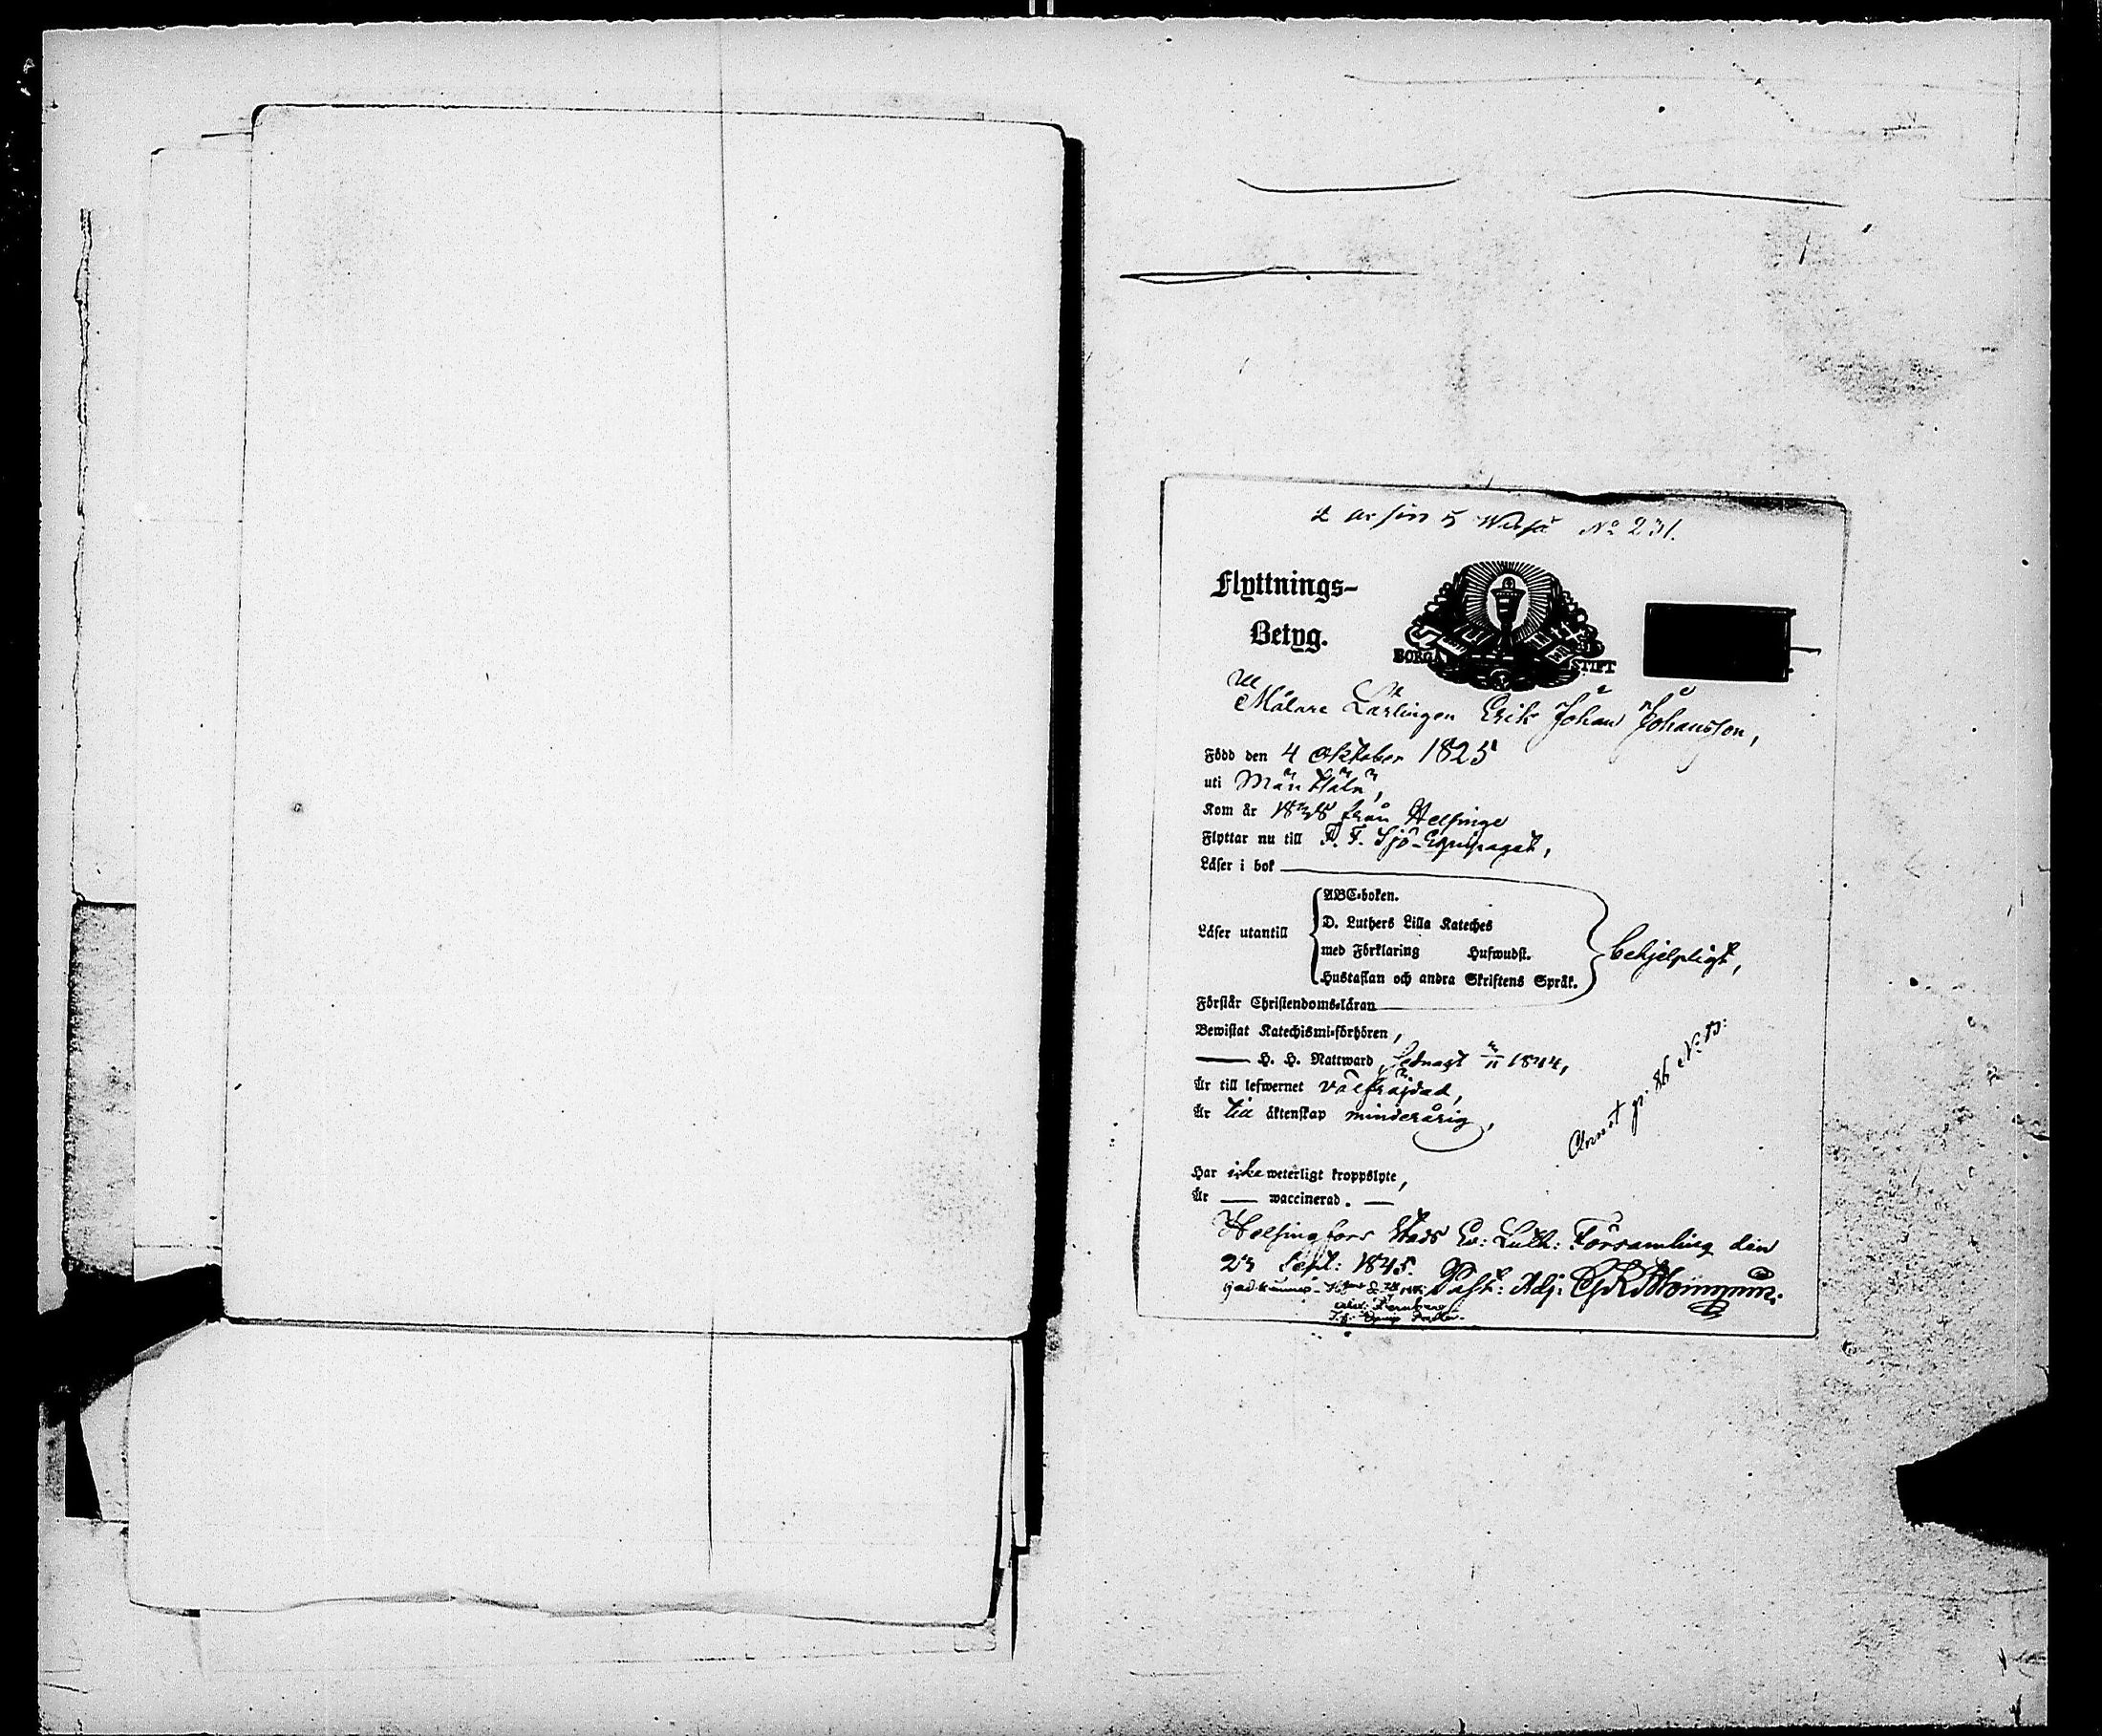 No 231.
Flyttnings-
Betyg.
BORGÅ STIFT
Målare Lärlingen Erik Johan Johansson,
Född den 4 Oktober 1825
uti Mäntsälä,
Kom år 1838 från Helsinge
Flyttar nu till F. F. Sjö-Equipaget,
Läser i bok
Läser utantill
ABC-boken.
D. Luthers Lilla Kateches
med Förklaring Hufwudst.
Hustaflan och andra Skriftens Språk.
behjelpligt,
Förstår Christendoms-läran
Bewistat Katechismi-förhören,
H. H. Nattward, sednast 1844,
Är till lefwernet välfräjdad,
Är till äktenskap minderårig,
Har icke weterligt kroppslyte,
Är — waccinerad. —
Helsingfors Stads Ev: Luth: Församling den
23 Sept: 1845. Past: Adj: